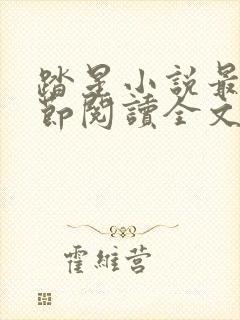 踏星小說最
節閱讀全文
霍維营